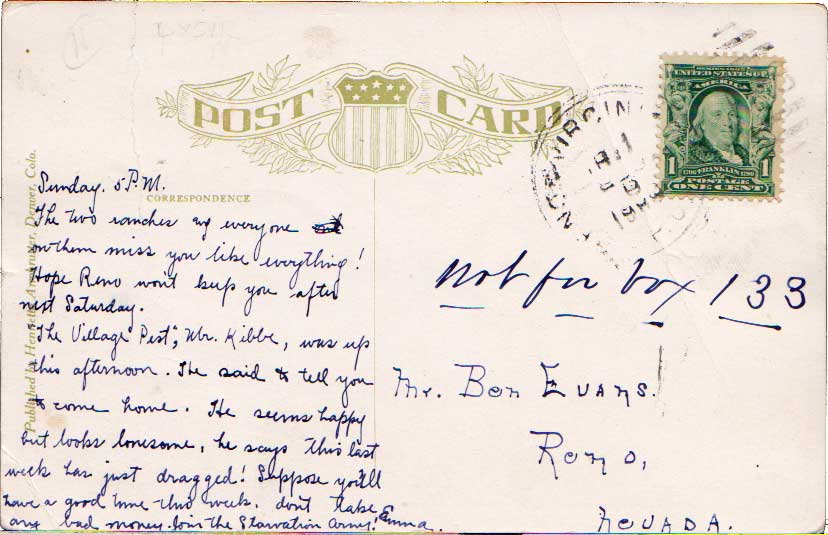 POST CARD
CORRESPONDENCE
Sunday. 5 P.M.
The two ranches & everyone
on them miss you like everything!
Hope Reno won't keep you after
next Saturday.
The Village "Pest", Mr. Kibbe, was up
this afternoon. He said to tell you
to come home. He seems happy
but looks lonesome, he says this last
week has just dragged! Suppose you'll
have a good time this week. don't take
any bad money. Join the Starvation Army! Emma.
Published by Denver, Colo.
VIRGIN
SERIES 1902
UNITED STATES OF
AMERICA
1706 FRANKLIN 1790
1 1
POSTAGE
ONE CENT
Not for box 133
Mr. Ben Evans.
Reno,
Nevada.